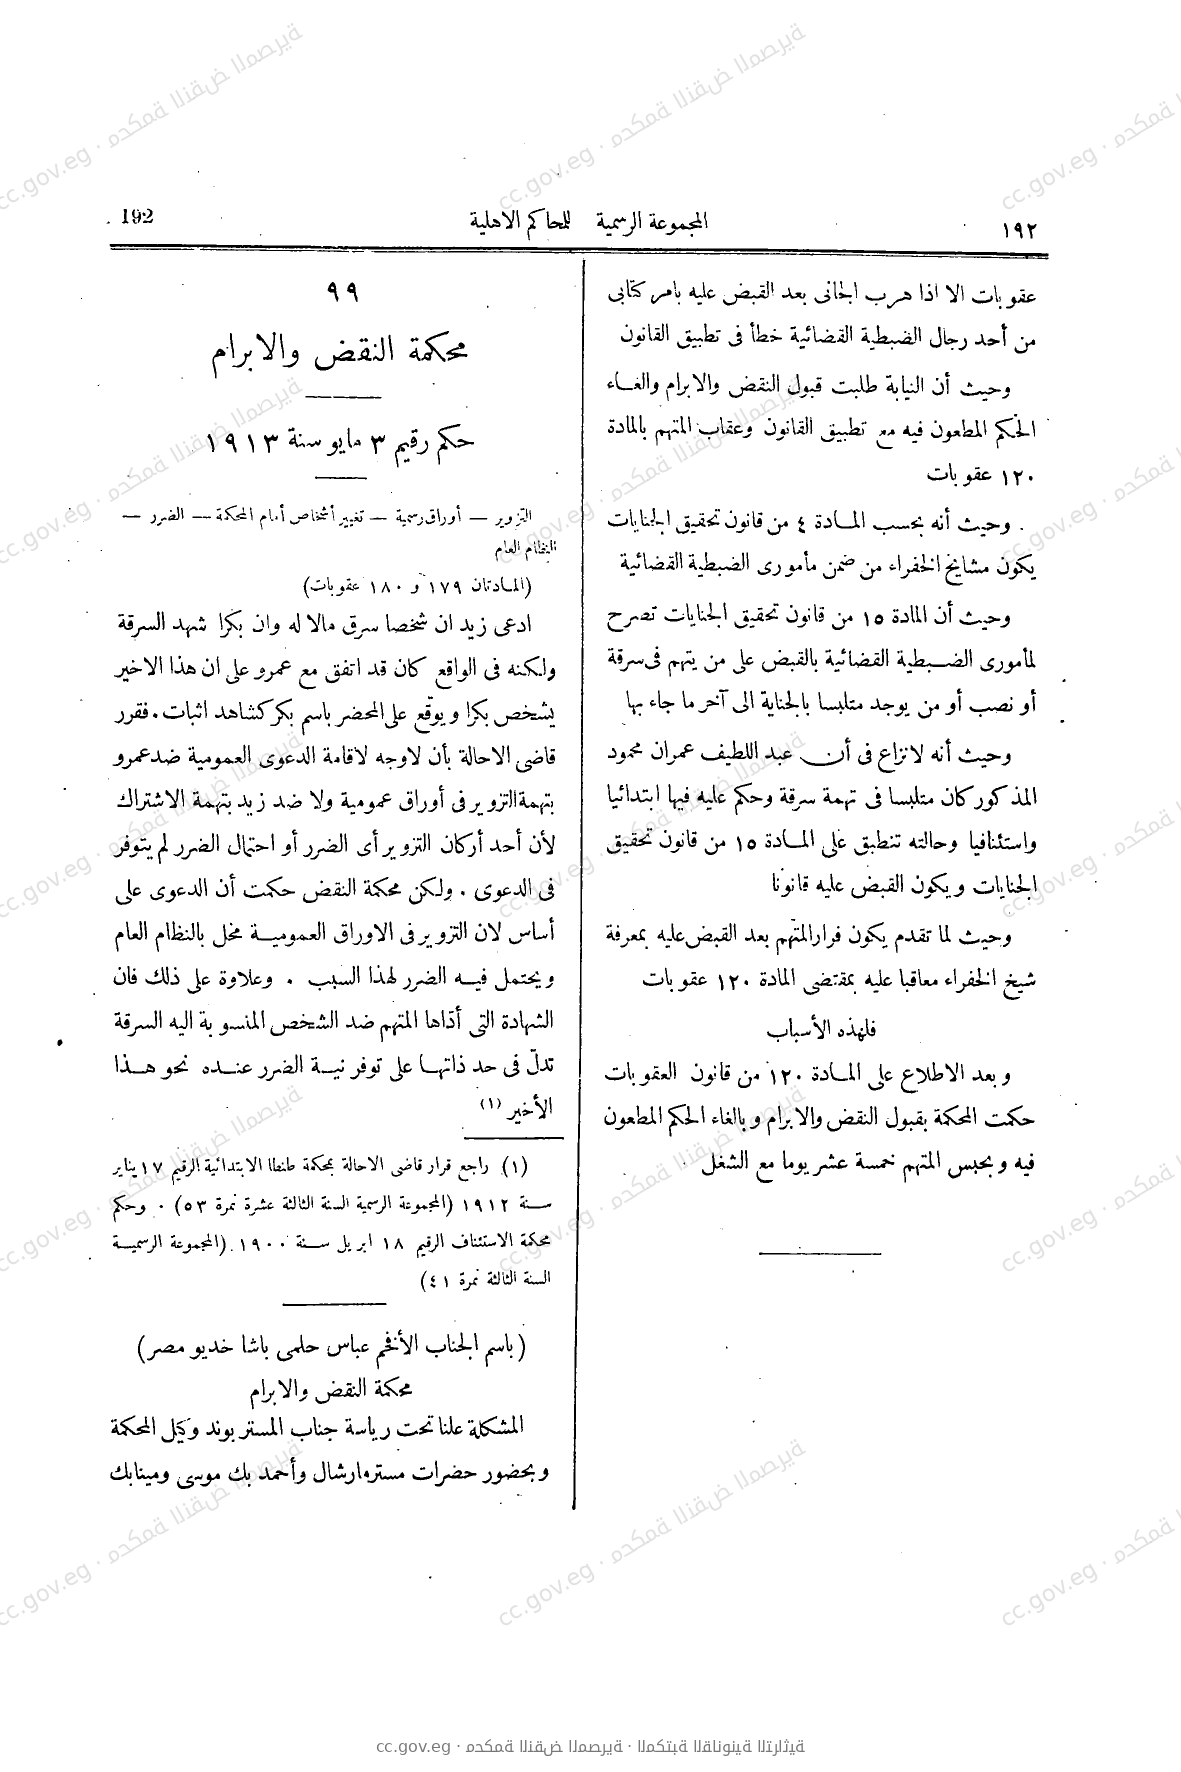 192
المجموعة الرسمية للمحاكم الاهلية
١٩٢
عقوبات الا اذا هرب الجانى بعد القبض عليه بامر كتابى
من أحد رجال الضبطية القضائية خطأ فى تطبيق القانون
وحيث أن النيابة طلبت قبول النقض والابرام والغاء
الحكم المطعون فيه مع تطبيق القانون وعقاب المتهم بالمادة
١٢٠ عقوبات
وحيث أنه بحسب المادة ٤ من قانون تحقيق الجنايات
يكون مشايخ الخفراء من ضمن مأمورى الضبطية القضائية
وحيث أن المادة ١٥ من قانون تحقيق الجنايات تصرح
لمأمورى الضبطية القضائية بالقبض على من يتهم فى سرقة
أو نصب أو من يوجد متلبسا بالجناية الى آخر ما جاء بها
وحيث أنه لانزاع فى أن عبد اللطيف عمران محمود
المذكور كان متلبسا فى تهمة سرقة وحكم عليه فيها ابتدائيا
واستئنافيا وحالته تنطبق على المادة ١٥ من قانون تحقيق
الجنايات ويكون القبض عليه قانونا
وحيث لما تقدم يكون فرار المتهم بعد القبض عليه بمعرفة
شيخ الخفراء معاقبا عليه بمقتضى المادة ١٢٠ عقوبات
فلهذه الأسباب
وبعد الاطلاع على المادة ١٢٠ من قانون العقوبات
حكمت المحكمة بقبول النقض والابرام وبالغاء الحكم المطعون
فيه وبحبس المتهم خمسة عشر يوما مع الشغل
٩٩
محكمة النقض والابرام
حكم رقيم ٣ مايو سنة ١٩١٣
التزوير — أوراق رسمية — تغيير أشخاص أمام المحكمة — الضرر —
النظام العام
(المادتان ١٧٩ و ١٨٠ عقوبات)
ادعى زيد ان شخصا سرق مالا له وان بكرا شهد السرقة
ولكنه فى الواقع كان قد اتفق مع عمرو على ان هذا الاخير
يشخص بكرا ويوقّع على المحضر باسم بكر كشاهد اثبات. فقرر
قاضى الاحالة بأن لاوجه لاقامة الدعوى العمومية ضد عمرو
بتهمة التزوير فى أوراق عمومية ولا ضد زيد بتهمة الاشتراك
لأن أحد أركان التزوير أى الضرر أو احتمال الضرر لم يتوفر
فى الدعوى . ولكن محكمة النقض حكمت أن الدعوى على
أساس لان التزوير فى الاوراق العمومية مخل بالنظام العام
ويحتمل فيه الضرر لهذا السبب . وعلاوة على ذلك فان
الشهادة التى أدّاها المتهم ضد الشخص المنسوبة اليه السرقة
تدلّ فى حد ذاتها على توفر نية الضرر عنده نحو هذا
الأخير (١)
(١) راجع قرار قاضى الاحالة بمحكمة طنطا الابتدائية الرقيم ١٧ يناير
سنة ١٩١٢ (المجموعة الرسمية السنة الثالثة عشرة نمرة ٥٣) . وحكم
محكمة الاستئناف الرقيم ١٨ ابريل سنة ١٩٠٠ (المجموعة الرسمية
السنة الثالثة نمرة ٤١)
(باسم الجناب الأفخم عباس حلمى باشا خديو مصر)
محكمة النقض والابرام
المشكلة علنا تحت رياسة جناب المستر بوند وكيل المحكمة
وبحضور حضرات مستر مارشال وأحمد بك موسى ومينابك
cc.gov.eg · محكمة النقض المصرية · المكتبة القانونية التراثية